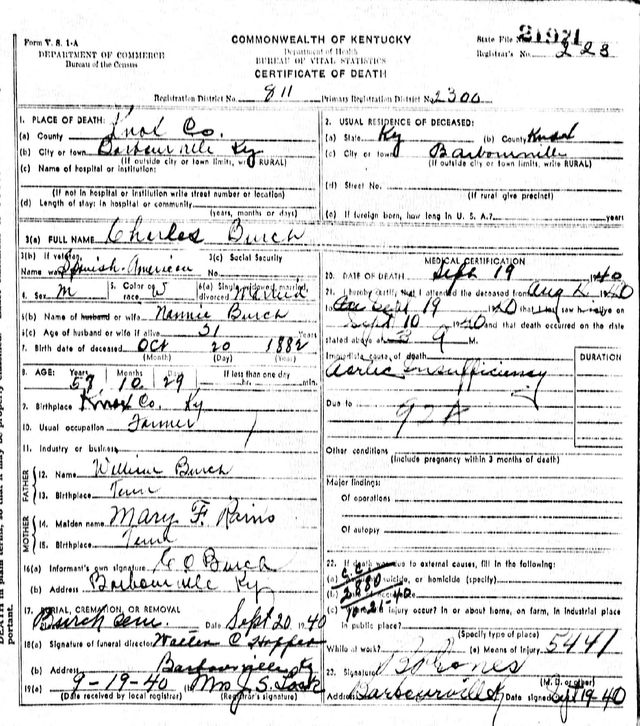 Form V. S. 1-A
DEPARTMENT OF COMMERCE
Bureau of the Census
COMMONWEALTH OF KENTUCKY
Department of Health
BUREAU OF VITAL STATISTICS
CERTIFICATE OF DEATH
State File No. 21921
Registrar's No. 223
Registration District No. 811 Primary Registration District No. 2300
1. PLACE OF DEATH:
(a) County Knox Co.
(b) City or town Barbourville Ky
(If outside city or town limits, write RURAL)
(c) Name of hospital or institution:
(If not in hospital or institution write street number or location)
(d) Length of stay: in hospital or community
(years, months or days)
2. USUAL RESIDENCE OF DECEASED:
(a) State Ky (b) County Knox
(c) City or town Barbourville
(If outside city or town limits, write RURAL)
(d) Street No.
(If rural give precinct)
(e) If foreign born, how long in U. S. A.? years
3(a) FULL NAME Charles Burch
3(b) If veteran, 3(c) Social Security
Name war Spanish-American No.
4. Sex M 5. Color or race W 6(a) Single, widowed, married, divorced Married
6(b) Name of husband or wife Nannie Burch
6(c) Age of husband or wife if alive 51 Years
7. Birth date of deceased Oct 20 1882
(Month) (Day) (Year)
8. AGE: Years Months Days If less than one day
57 10 29 hr. min.
9. Birthplace Knox Co. Ky
10. Usual occupation Farmer
11. Industry or business
FATHER
12. Name William Burch
13. Birthplace Tenn
MOTHER
14. Maiden name Mary F. Rains
15. Birthplace Tenn
16(a) Informant's own signature C O Burch
(b) Address Barbourville Ky
17. BURIAL, CREMATION, OR REMOVAL
Place Burch Cem. Date Sept 20 1940
18(a) Signature of funeral director Walter C Hopper
(b) Address Barbourville, Ky
19(a) 9-19-40 Mrs J. S. Lock
(Date received by local registrar) (Registrar's signature)
MEDICAL CERTIFICATION
20. DATE OF DEATH Sept 19 1940
21. I hereby certify that I attended the deceased from Aug 2 1940
Sept 19 1940 that I last saw h alive on
Sept 10 1940 and that death occurred on the date
stated above at 9 M.
Immediate cause of death
Aortic insufficiency
DURATION
Due to
Other conditions
(Include pregnancy within 3 months of death)
Major findings:
Of operations
Of autopsy
22. If death was due to external causes, fill in the following:
(a) Accident, suicide, or homicide (specify)
2880
10-21-40
(c) injury occur? In or about home, on farm, in industrial place
in public place?
(Specify type of place)
While at work? (e) Means of injury 5441
23. Signature Jones
(M. D. or other)
Address Barbourville Date signed 19-40